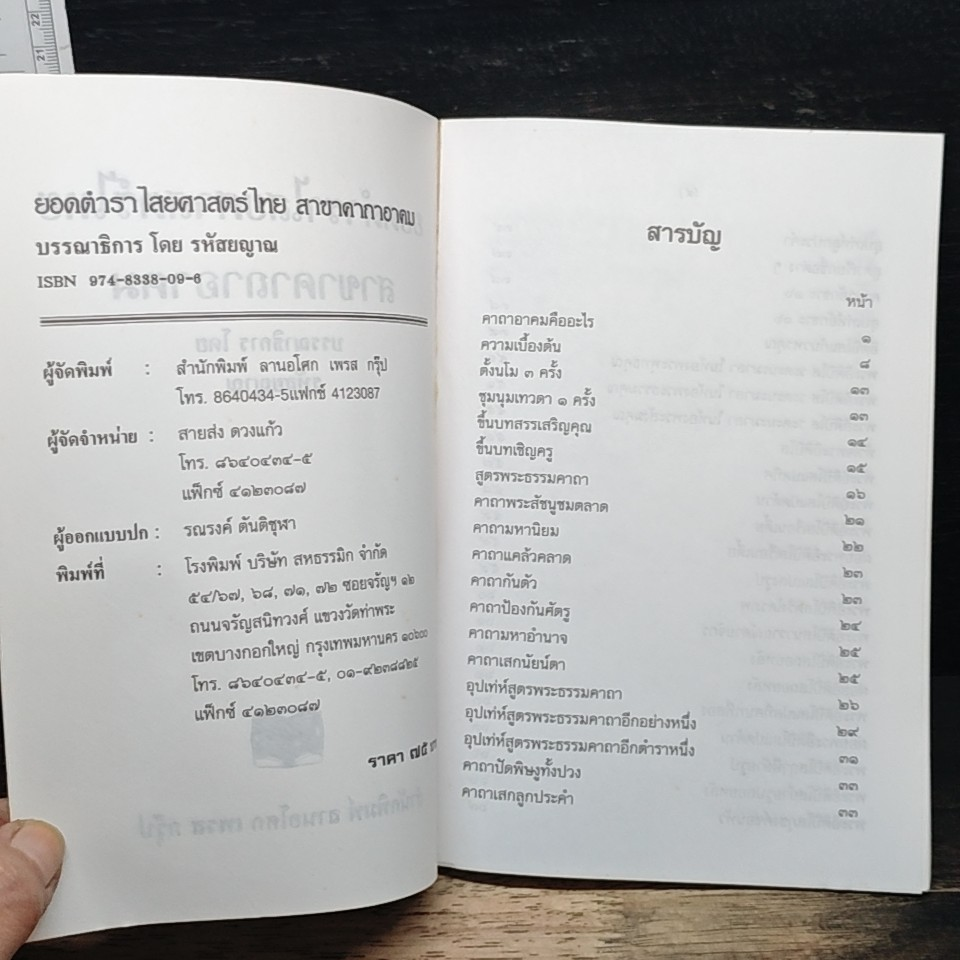 ยอดตำราไสยศาสตร์ไทย สาขาคาถาอาคม
บรรณาธิการ โดย รหัสยญาณ
ISBN 974-8338-09-6
ผู้จัดพิมพ์ : สำนักพิมพ์ ลานอโศก เพรส กรุ๊ป
โทร. 8640434-5แฟกซ์ 4123087
ผู้จัดจำหน่าย : สายส่ง ดวงแก้ว
โทร. ๘๖๔๐๔๓๔-๕
แฟ็กซ์ ๔๑๒๓๐๘๗
ผู้ออกแบบปก : รณรงค์ ตันติชุฬา
พิมพ์ที่ : โรงพิมพ์ บริษัท สหธรรมิก จำกัด
๕๔/๖๗, ๖๘, ๗๑, ๗๒ ซอยจรัญฯ ๑๒
ถนนจรัญสนิทวงศ์ แขวงวัดท่าพระ
เขตบางกอกใหญ่ กรุงเทพมหานคร ๑๐๖๐๐
โทร. ๘๖๔๐๔๓๔-๕, ๐๑-๙๒๓๘๘๒๕
แฟ็กซ์ ๔๑๒๓๐๘๗
ราคา ๗๕
สารบัญ
หน้า
คาถาอาคมคืออะไร ๑
ความเบื้องต้น ๘
ตั้งนโม ๓ ครั้ง ๑๓
ชุมนุมเทวดา ๑ ครั้ง ๑๓
ขึ้นบทสรรเสริญคุณ ๑๔
ขึ้นบทเชิญครู ๑๕
สูตรพระธรรมคาถา ๑๖
คาถาพระสัชนูชมตลาด ๒๑
คาถามหานิยม ๒๒
คาถาแคล้วคลาด ๒๓
คาถากันตัว ๒๓
คาถาป้องกันศัตรู ๒๔
คาถามหาอำนาจ ๒๕
คาถาเสกนัยน์ตา ๒๕
อุปเท่ห์สูตรพระธรรมคาถา ๒๖
อุปเท่ห์สูตรพระธรรมคาถาอีกอย่างหนึ่ง ๒๙
อุปเท่ห์สูตรพระธรรมคาถาอีกตำราหนึ่ง ๓๑
คาถาปัดพิษงูทั้งปวง ๓๓
คาถาเสกลูกประคำ ๓๓
21
22